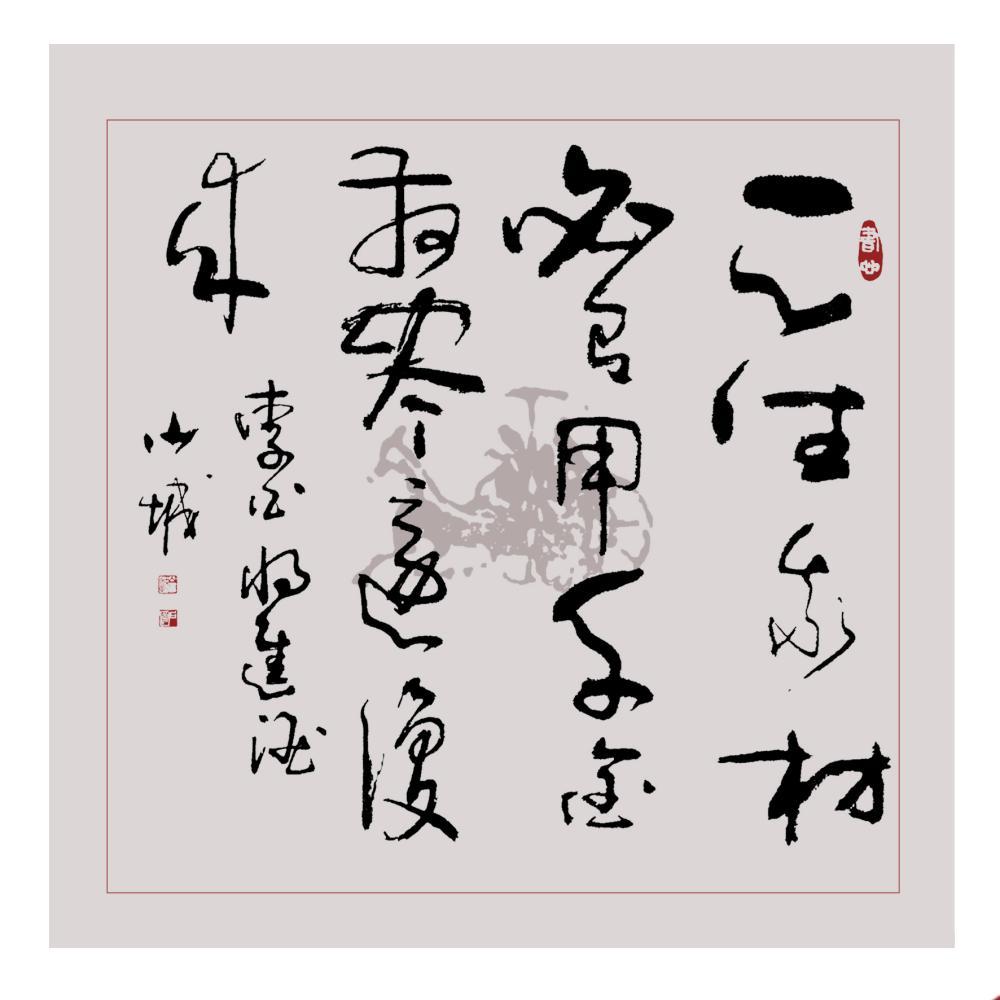 天生我材
必有用千金
散尽還復
来
李白将進酒
城